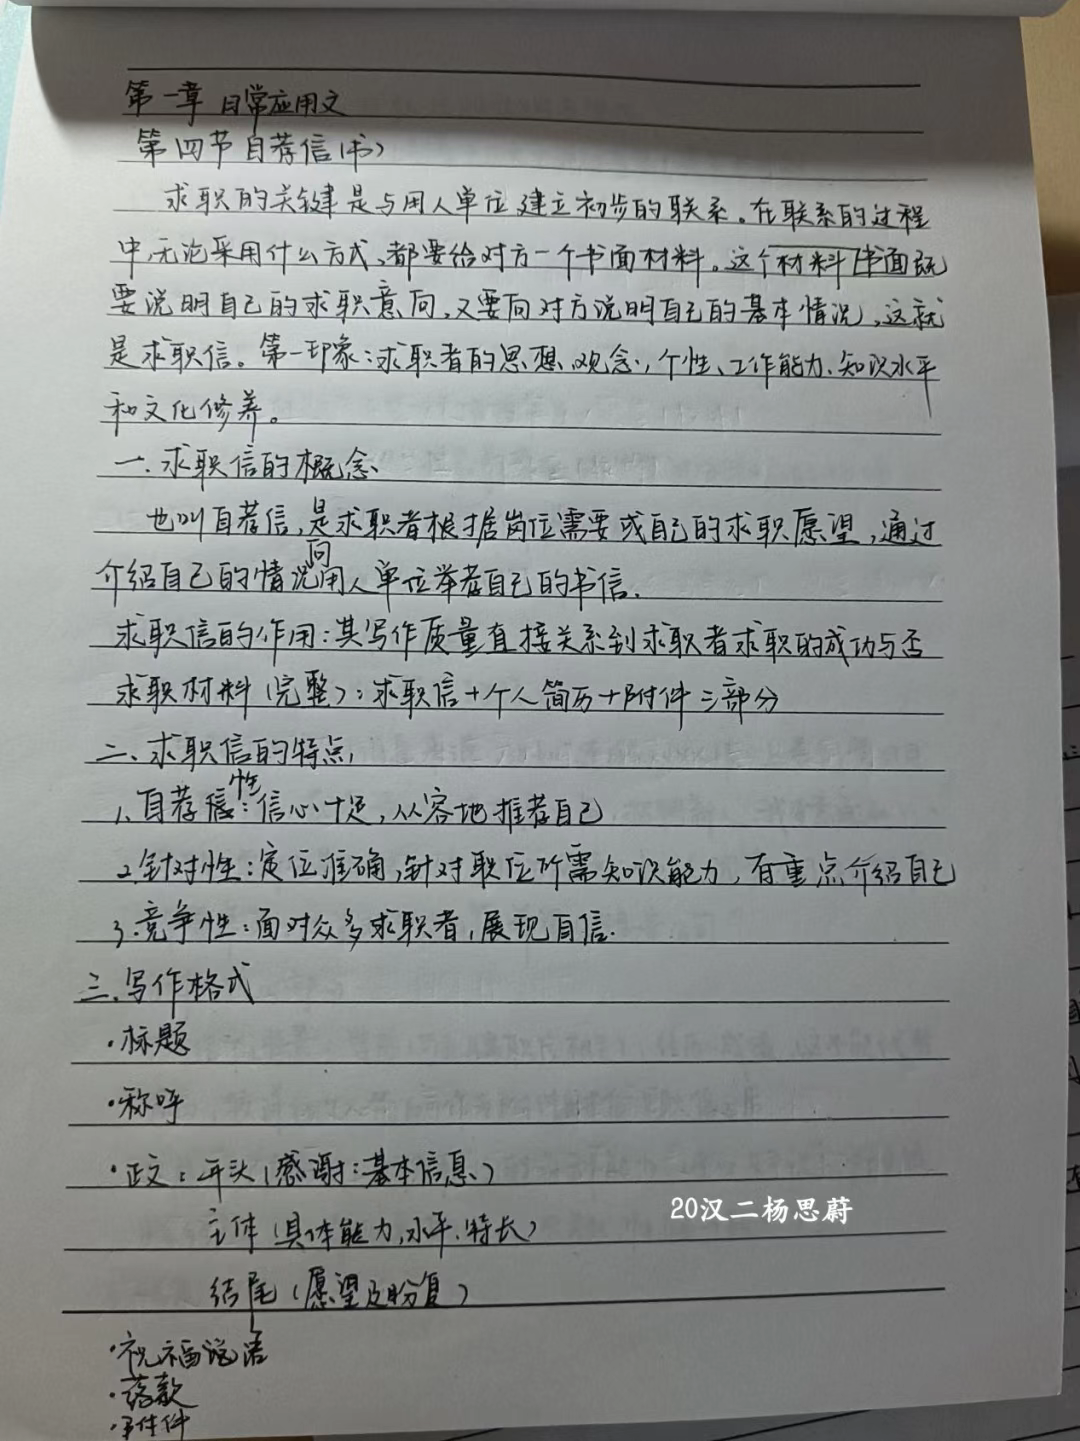 第一章 日常应用文
第四节自荐信(书)
求职的关键是与用人单位建立初步的联系。在联系的过程
中,无论采用什么方式,都要给对方一个书面材料。这个材料书面既
要说明自己的求职意向,又要向对方说明自己的基本情况,这就
是求职信。第一印象:求职者的思想、观念、个性、工作能力、知识水平
和文化修养。
一、求职信的概念
也叫自荐信,是求职者根据岗位需要或自己的求职愿望,通过
介绍自己的情况向用人单位举荐自己的书信.
求职信的作用:其写作质量直接关系到求职者求职的成功与否
求职材料(完整):求职信+个人简历+附件三部分
二、求职信的特点
1、自荐性:信心十足,从容地推荐自己
2.针对性:定位准确,针对职位所需知识能力,有重点介绍自己
3.竞争性:面对众多求职者,展现自信.
三、写作格式
·标题
·称呼
·正文:开头(感谢:基本信息)
主体(具体能力,水平、特长)
20汉二杨思蔚
结尾(愿望及盼复)
·祝福语
·落款
·附件